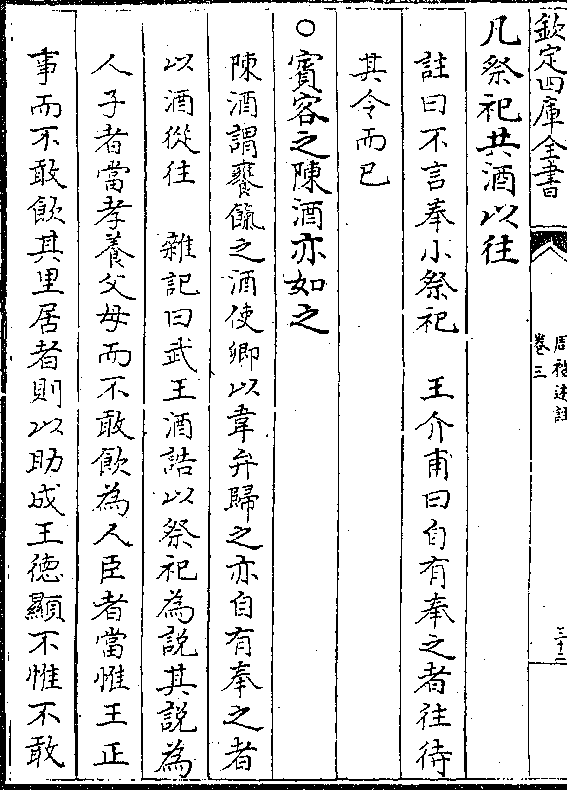 欽定四庫全書
周禮述註
卷三
三十二
凡祭祀共酒以往
註曰不言奉小祭祀　王介甫曰自有奉之者往待
其令而已
○賓客之陳酒亦如之
陳酒謂饔餼之酒使卿以韋弁歸之亦自有奉之者
以酒從往　雜記曰武王酒誥以祭祀為說其說為
人子者當孝養父母而不敢飲為人臣者當惟王正
事而不敢飲其里居者則以助成王德顯不惟不敢